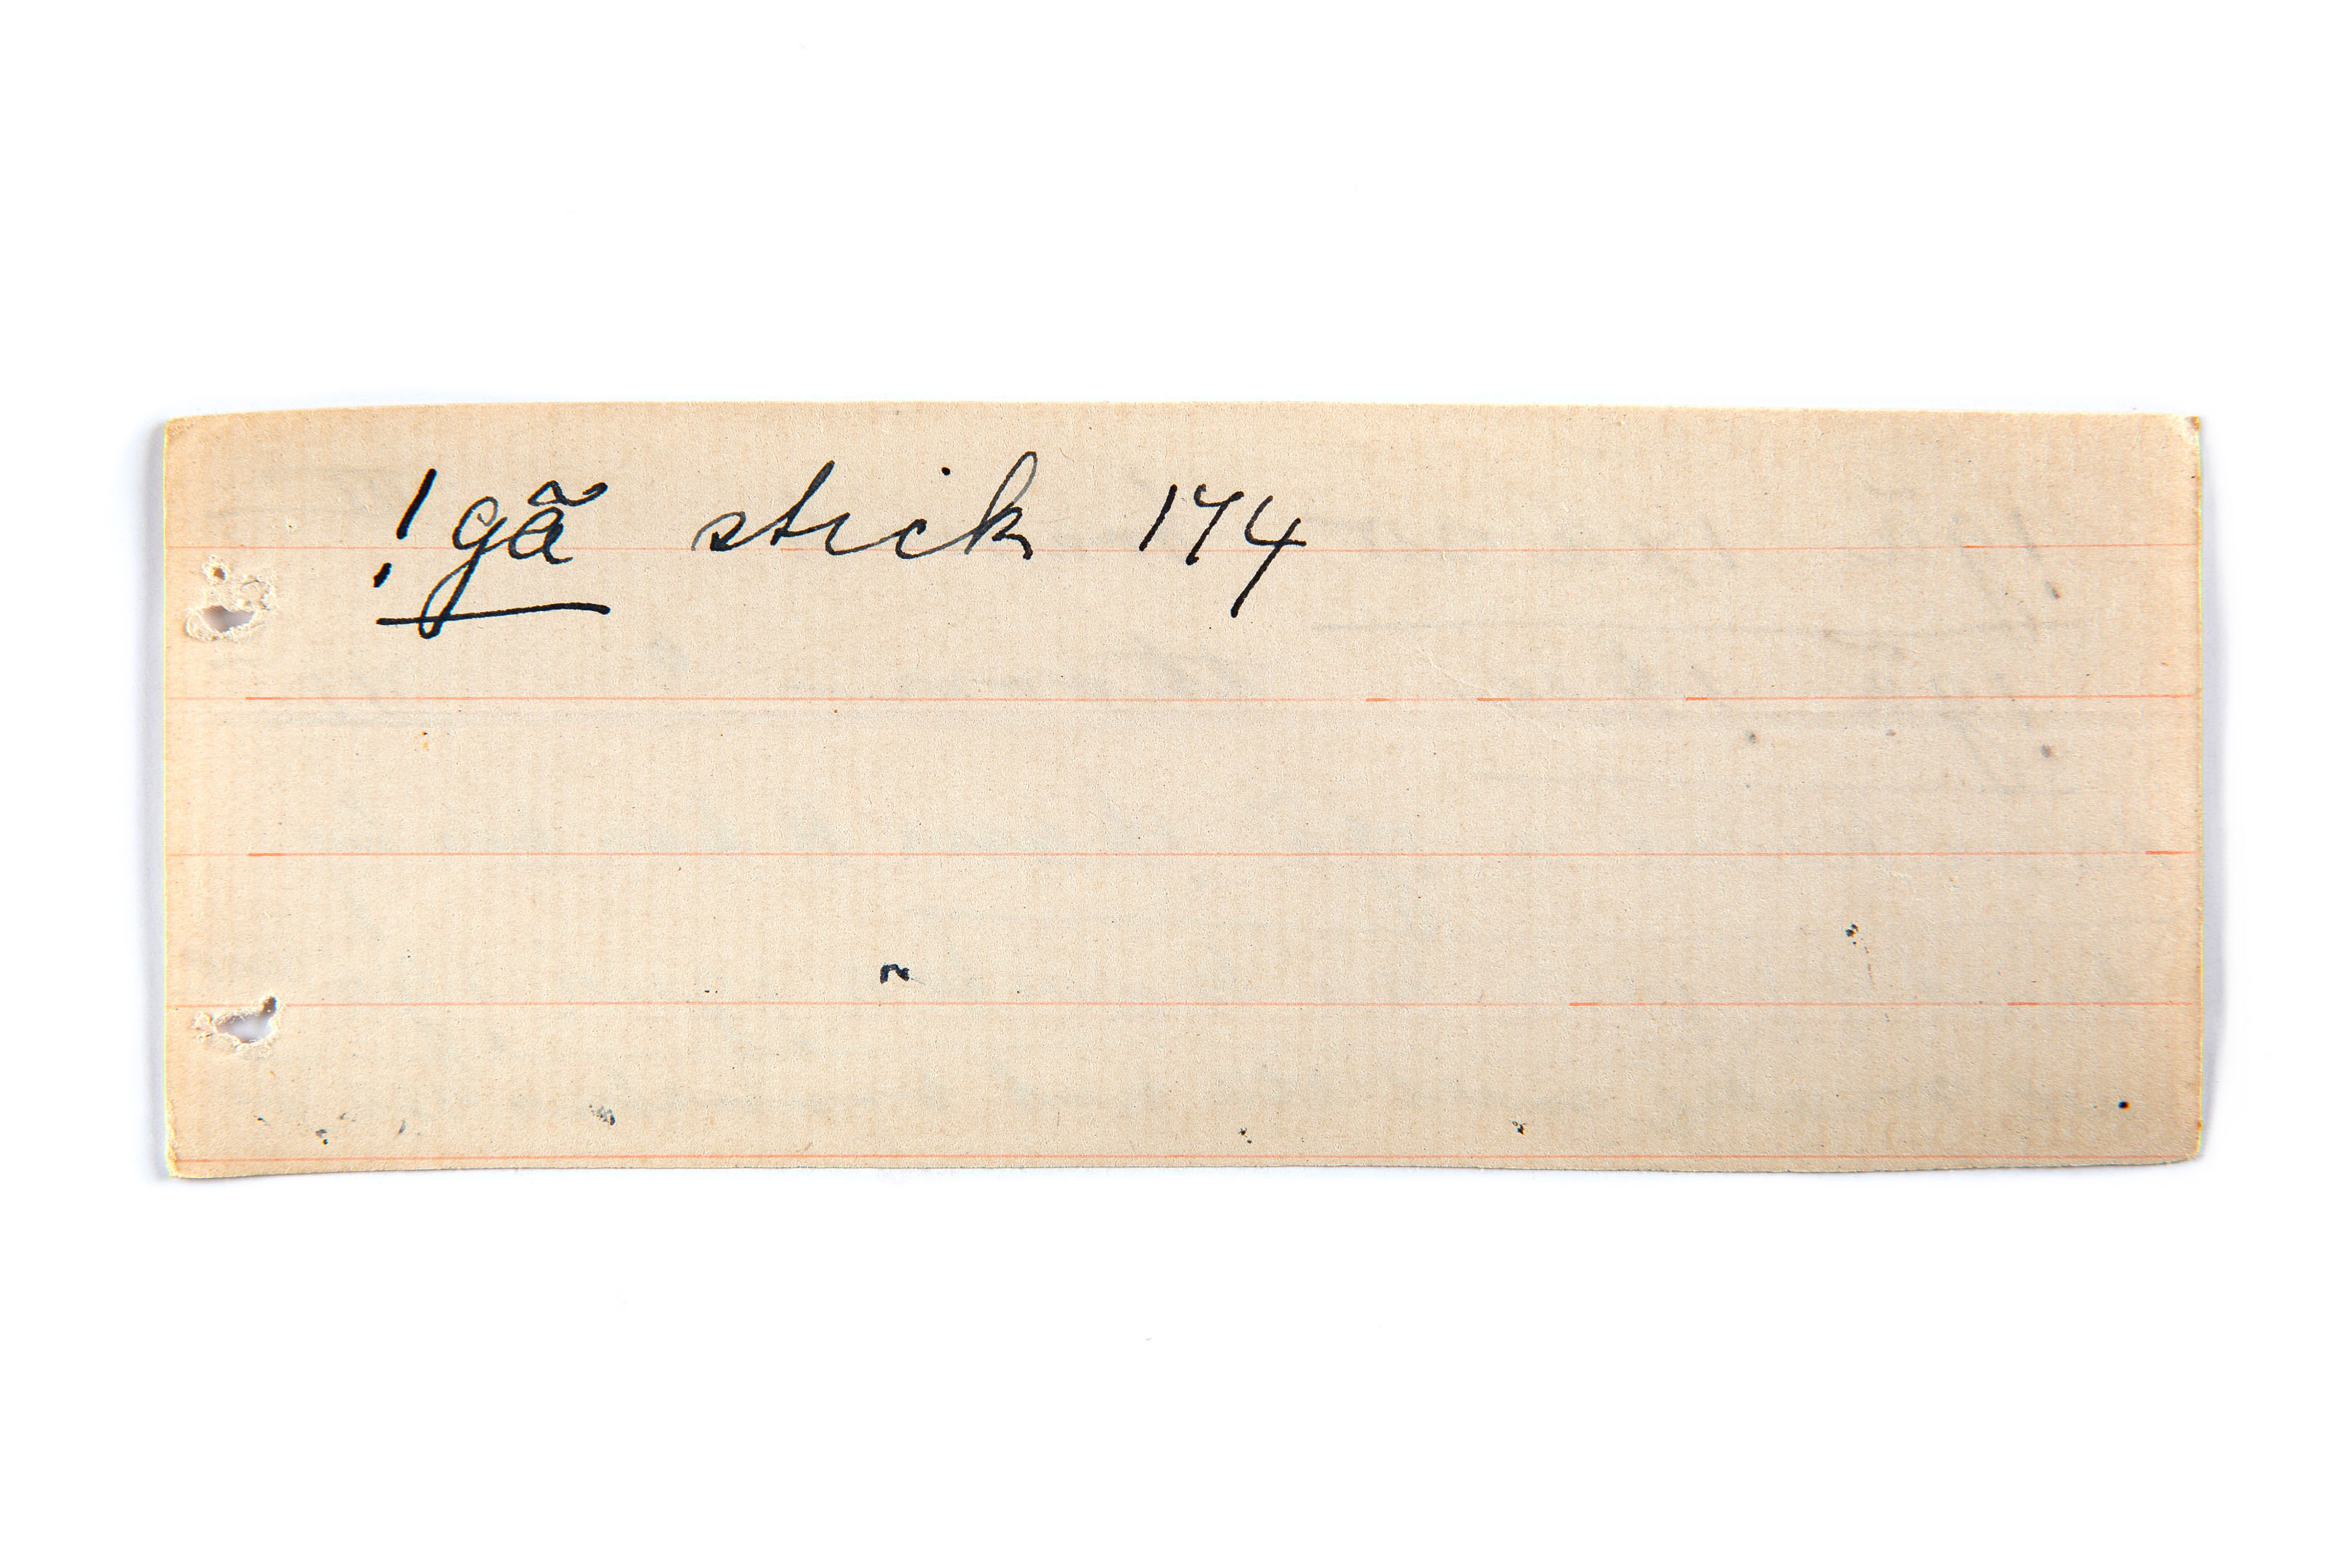 !gã stick 174